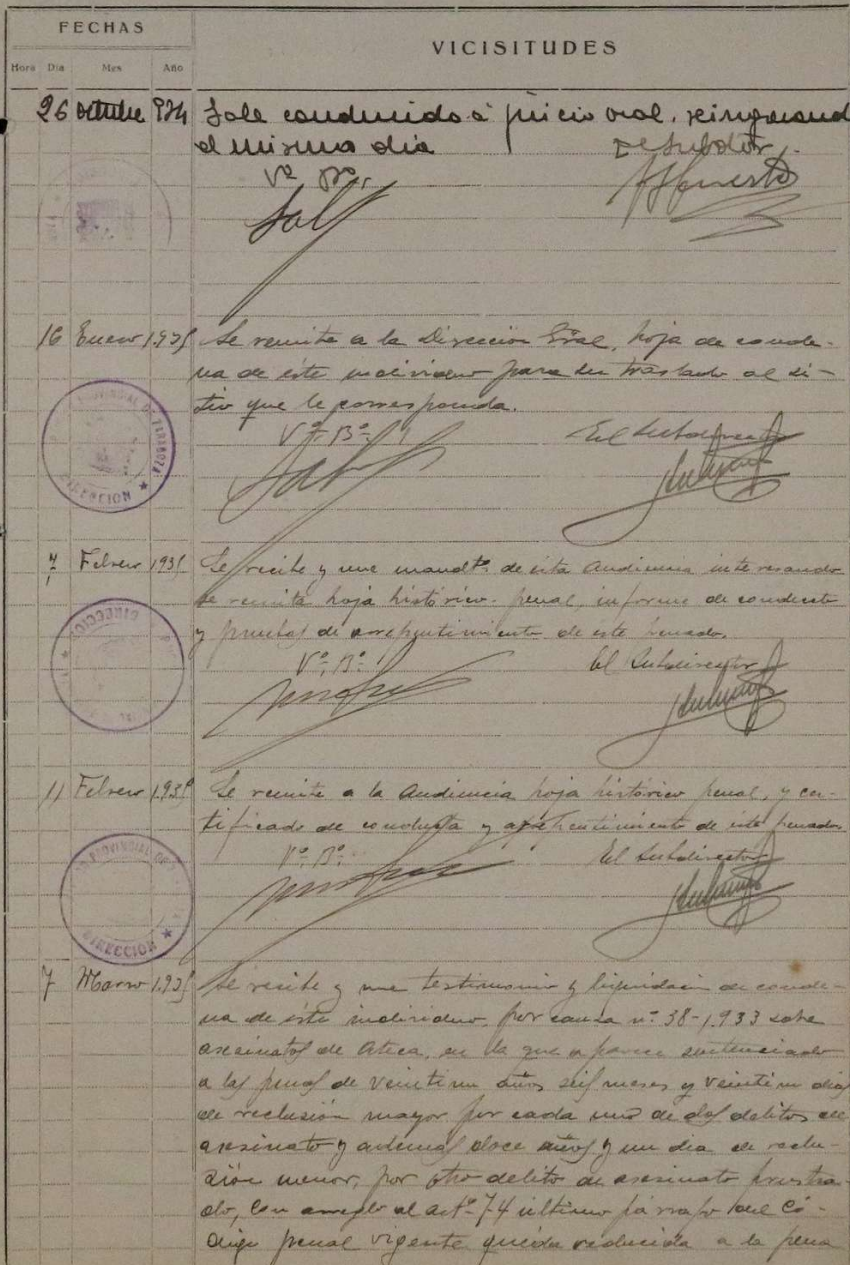 FECHAS
VICISITUDES
Hora Dia Mes Año
26 octubre 934 Sale conducido á juicio oral, reingresand
el mismo dia El Subdtor.
Vº Bº,
16 Enero 1.935 Se remite a la Dirección Gral, hoja de conde-
na de éste individuo para su traslado al si-
tio que le corresponda.
Vº Bº El Subdirector
PROVINCIAL DE ZARAGOZA
DIRECCION
7 Febrero 1935 Se recibe y une mandtº de esta Audiencia interesando
se remita hoja histórico-penal, informe de conducta
y pruebas de arrepentimiento de este penado.
Vº Bº El Subdirector
DIRECCION
11 Febrero 1.935 Se remite a la Audiencia hoja histórico penal, y cer-
tificado de conducta y arrepentimiento de este penado
Vº Bº El Subdirector
PROVINCIAL DE
DIRECCION
7 Marzo 1.935 Se recibe y une testimonio y liquidación de conde-
na de éste individuo, por causa nº 38-1.933 sobre
asesinatos de Ateca, en la que aparece sentenciado
a las penas de veintiun años seis meses y veintiun dias
de reclusión mayor por cada uno de dos delitos de
asesinato y además doce años y un dia de reclu-
sión menor, por otro delito de asesinato frustra-
do, con arreglo al artº 74 último párrafo del Có-
digo penal vigente queda reducida a la pena